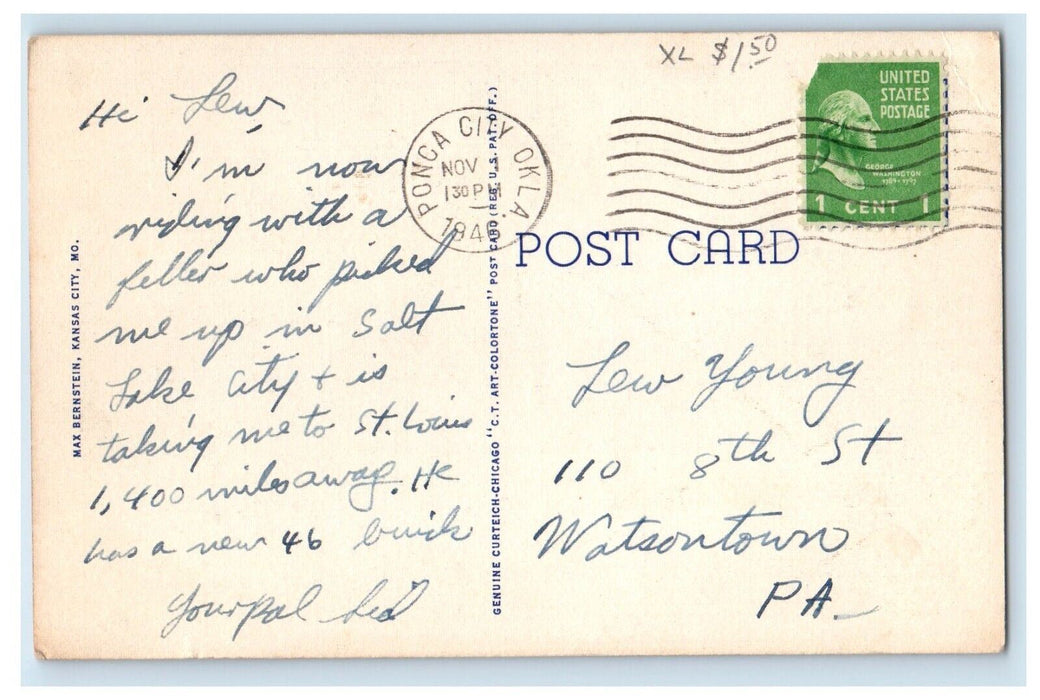 XL $1.50
UNITED
STATES
POSTAGE
GEORGE
WASHINGTON
1789-1797
1 CENT 1
PONCA CITY OKLA.
NOV
130 PM
Hi Lew,
I'm now
riding with a
feller who picked
me up in Salt
Lake City + is
taking me to St. Louis
1,400 miles away. He
has a new 46 buick
Your Pal
MAX BERNSTEIN, KANSAS CITY, MO.
GENUINE CURTEICH-CHICAGO "C.T. ART-COLORTONE" POST CARD (REG. U.S. PAT. OFF.)
POST CARD
Lew Young
110 8th St
Watsontown
PA.